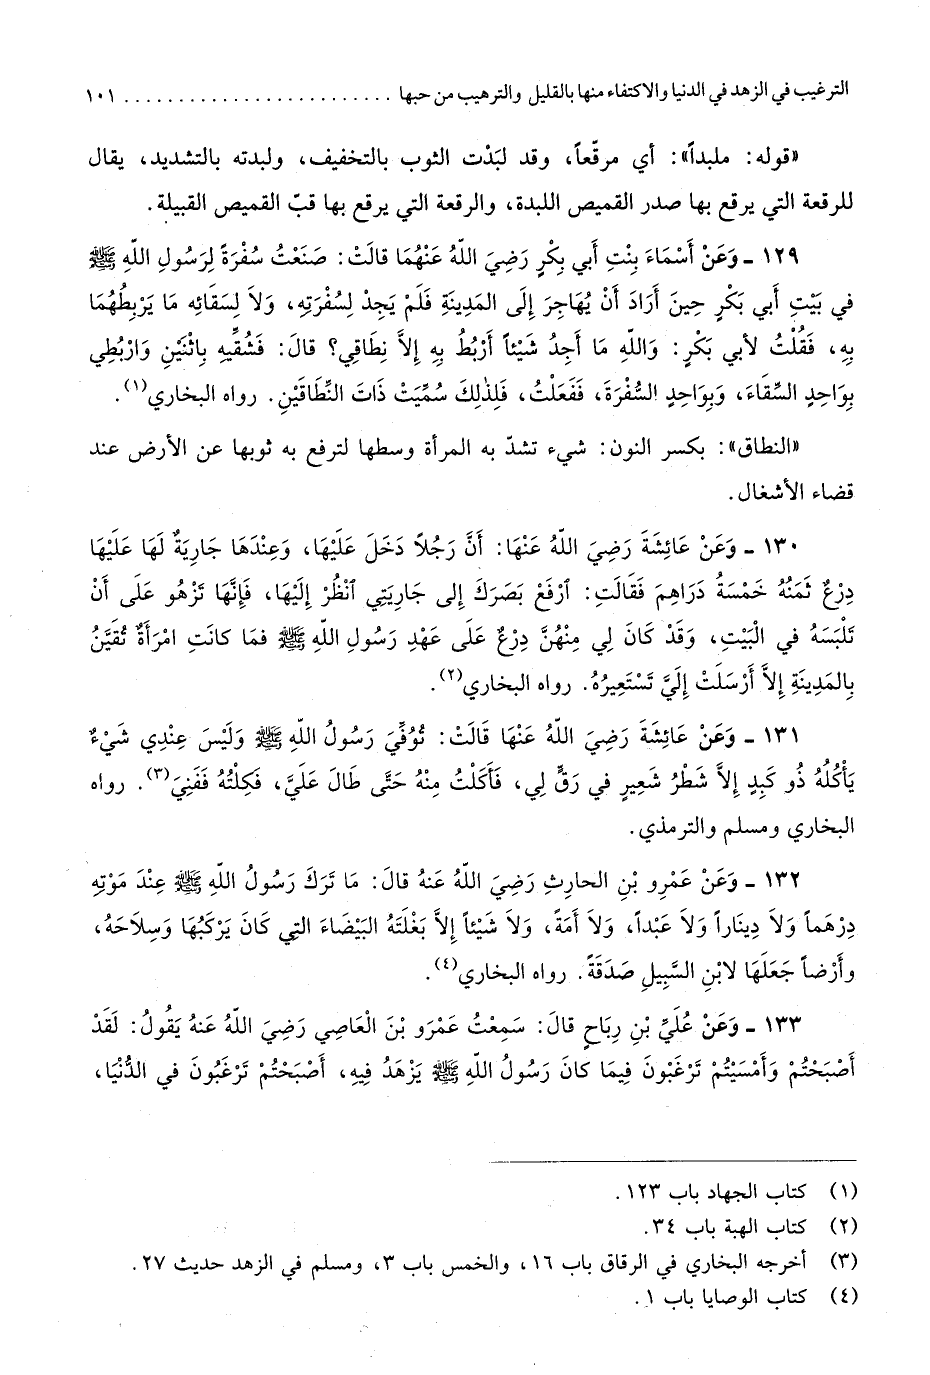 الترغيب في الزهد في الدنيا والاكتفاء منها بالقليل والترهيب من حبها ......................... ١٠١
«قوله: ملبداً»: أي مرقّعاً، وقد لبَدْت الثوب بالتخفيف، ولبدته بالتشديد، يقال
للرقعة التي يرقع بها صدر القميص اللبدة، والرقعة التي يرقع بها قبّ القميص القبيلة.
١٢٩ ـ وَعَنْ أَسْمَاءَ بِنْتِ أَبي بِكْرٍ رَضِيَ اللّهُ عَنْهُمَا قالَتْ: صَنَعْتُ سُفْرَةً لِرَسُولِ اللّهِ ﷺ
في بَيْتِ أَبي بَكْرٍ حِينَ أَرَادَ أَنْ يُهَاجِرَ إِلَى المَدِينَةِ فَلَمْ يَجِدْ لِسُفْرَتِهِ، وَلاَ لِسَقَائِه مَا يَرْبِطُهُمَا
بِهِ، فَقُلْتُ لأبي بَكْرٍ: وَاللّهِ مَا أَجِدُ شَيْئاً أَرْبُطُ بِهِ إِلاَّ نِطَاقِي؟ قالَ: فَشُقِّيهِ بِاثْنَيْنِ وَارْبُطِي
بِوَاحِدٍ السِّقَاءَ، وَبِوَاحِدٍ السُّفْرَةَ، فَفَعَلْتُ، فَلِذٰلِكَ سُمِّيَتْ ذَاتَ النِّطَاقَيْنِ. رواه البخاري(١).
«النطاق»: بكسر النون: شيء تشدّ به المرأة وسطها لترفع به ثوبها عن الأرض عند
قضاء الأشغال.
١٣٠ ـ وَعَنْ عَائِشَةَ رَضِيَ اللّهُ عَنْهَا: أَنَّ رَجُلاً دَخَلَ عَلَيْهَا، وَعِنْدَهَا جَارِيَةٌ لَهَا عَلَيْهَا
دِرْعٌ ثَمَنُهُ خَمْسَةُ دَرَاهِمَ فَقَالَتِ: ٱرْفَعْ بَصَرَكَ إِلى جَارِيَتِي ٱنْظُرْ إِلَيْهَا، فَإِنَّهَا تَزْهُو عَلَى أَنْ
تَلْبَسَهُ في الْبَيْتِ، وَقَدْ كَانَ لِي مِنْهُنَّ دِرْعٌ عَلَى عَهْدِ رَسُولِ اللّهِ ﷺ فمَا كانَتِ امْرَأَةٌ تُقَيَّنُ
بِالمَدِينَةِ إِلاَّ أَرْسَلَتْ إِلَيَّ تَسْتَعِيرُهُ. رواه البخاري(٢).
١٣١ ـ وَعَنْ عَائِشَةَ رَضِيَ اللّهُ عَنْهَا قَالَتْ: تُوُفِّيَ رَسُولُ اللّهِ ﷺ وَلَيْسَ عِنْدِي شَيْءٌ
يَأْكُلُهُ ذُو كَبِدٍ إِلاَّ شَطْرُ شَعِيرٍ في رَفٍّ لِي، فَأَكَلْتُ مِنْهُ حَتَّى طَالَ عَلَيَّ، فَكِلْتُهُ فَفَنِيَ(٣). رواه
البخاري ومسلم والترمذي.
١٣٢ ـ وَعَنْ عَمْرِو بْنِ الحارِثِ رَضِيَ اللّهُ عَنهُ قالَ: مَا تَرَكَ رَسُولُ اللّهِ ﷺ عِنْدَ مَوْتِهِ
دِرْهَماً وَلاَ دِينَاراً وَلاَ عَبْداً، وَلاَ أَمَةً، وَلاَ شَيْئاً إِلاَّ بَغْلَتَهُ الْبَيْضَاءَ التِي كَانَ يَرْكَبُهَا وَسِلاَحَهُ،
وأَرْضاً جَعَلَهَا لابْنِ السَّبِيلِ صَدَقَةً. رواه البخاري(٤).
١٣٣ ـ وَعَنْ عُلَيِّ بْنِ رِبَاحٍ قالَ: سَمِعْتُ عَمْرَو بْنَ الْعَاصِي رَضِيَ اللّهُ عَنهُ يَقُولُ: لَقَدْ
أَصْبَحْتُمْ وَأَمْسَيْتُمْ تَرْغَبُونَ فِيمَا كانَ رَسُولُ اللّهِ ﷺ يَزْهَدُ فِيهِ، أَصْبَحْتُمْ تَرْغَبُونَ في الدُّنْيَا،
(١) كتاب الجهاد باب ١٢٣.
(٢) كتاب الهبة باب ٣٤.
(٣) أخرجه البخاري في الرقاق باب ١٦، والخمس باب ٣، ومسلم في الزهد حديث ٢٧.
(٤) كتاب الوصايا باب ١.